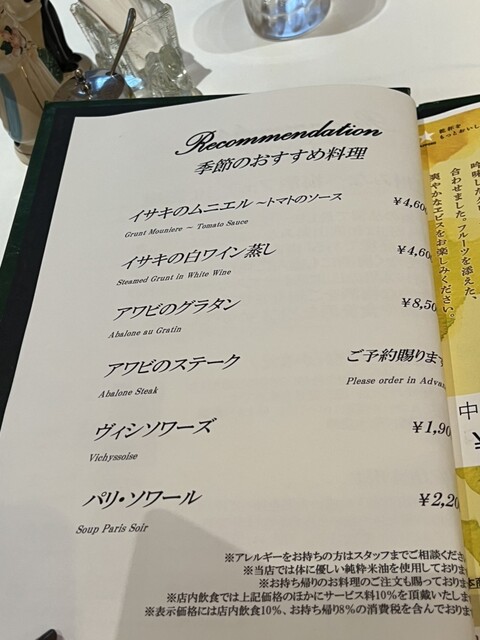 Recommendation
季節のおすすめ料理
イサキのムニエル ～トマトのソース ¥4,60
Grunt Mouniere ～ Tomato Sauce
イサキの白ワイン蒸し ¥4,60
Steamed Grunt in White Wine
アワビのグラタン ¥8,50
Abalone au Gratin
アワビのステーク ご予約賜ります
Abalone Steak Please order in Advan
ヴィシソワーズ ¥1,90
Vichyssoise
パリ・ソワール ¥2,20
Soup Paris Soir
※アレルギーをお持ちの方はスタッフまでご相談くださ
※当店では体に優しい純粋米油を使用しておりま
※お持ち帰りのお料理のご注文も賜っておりま
※店内飲食では上記価格のほかにサービス料10%を頂戴いたしま
※表示価格には店内飲食10%、お持ち帰り8%の消費税を含んでおりま
乾杯を
もっとおいし
合わせました。フルーツを添えた、
爽やかなエビスをお楽しみください。
中